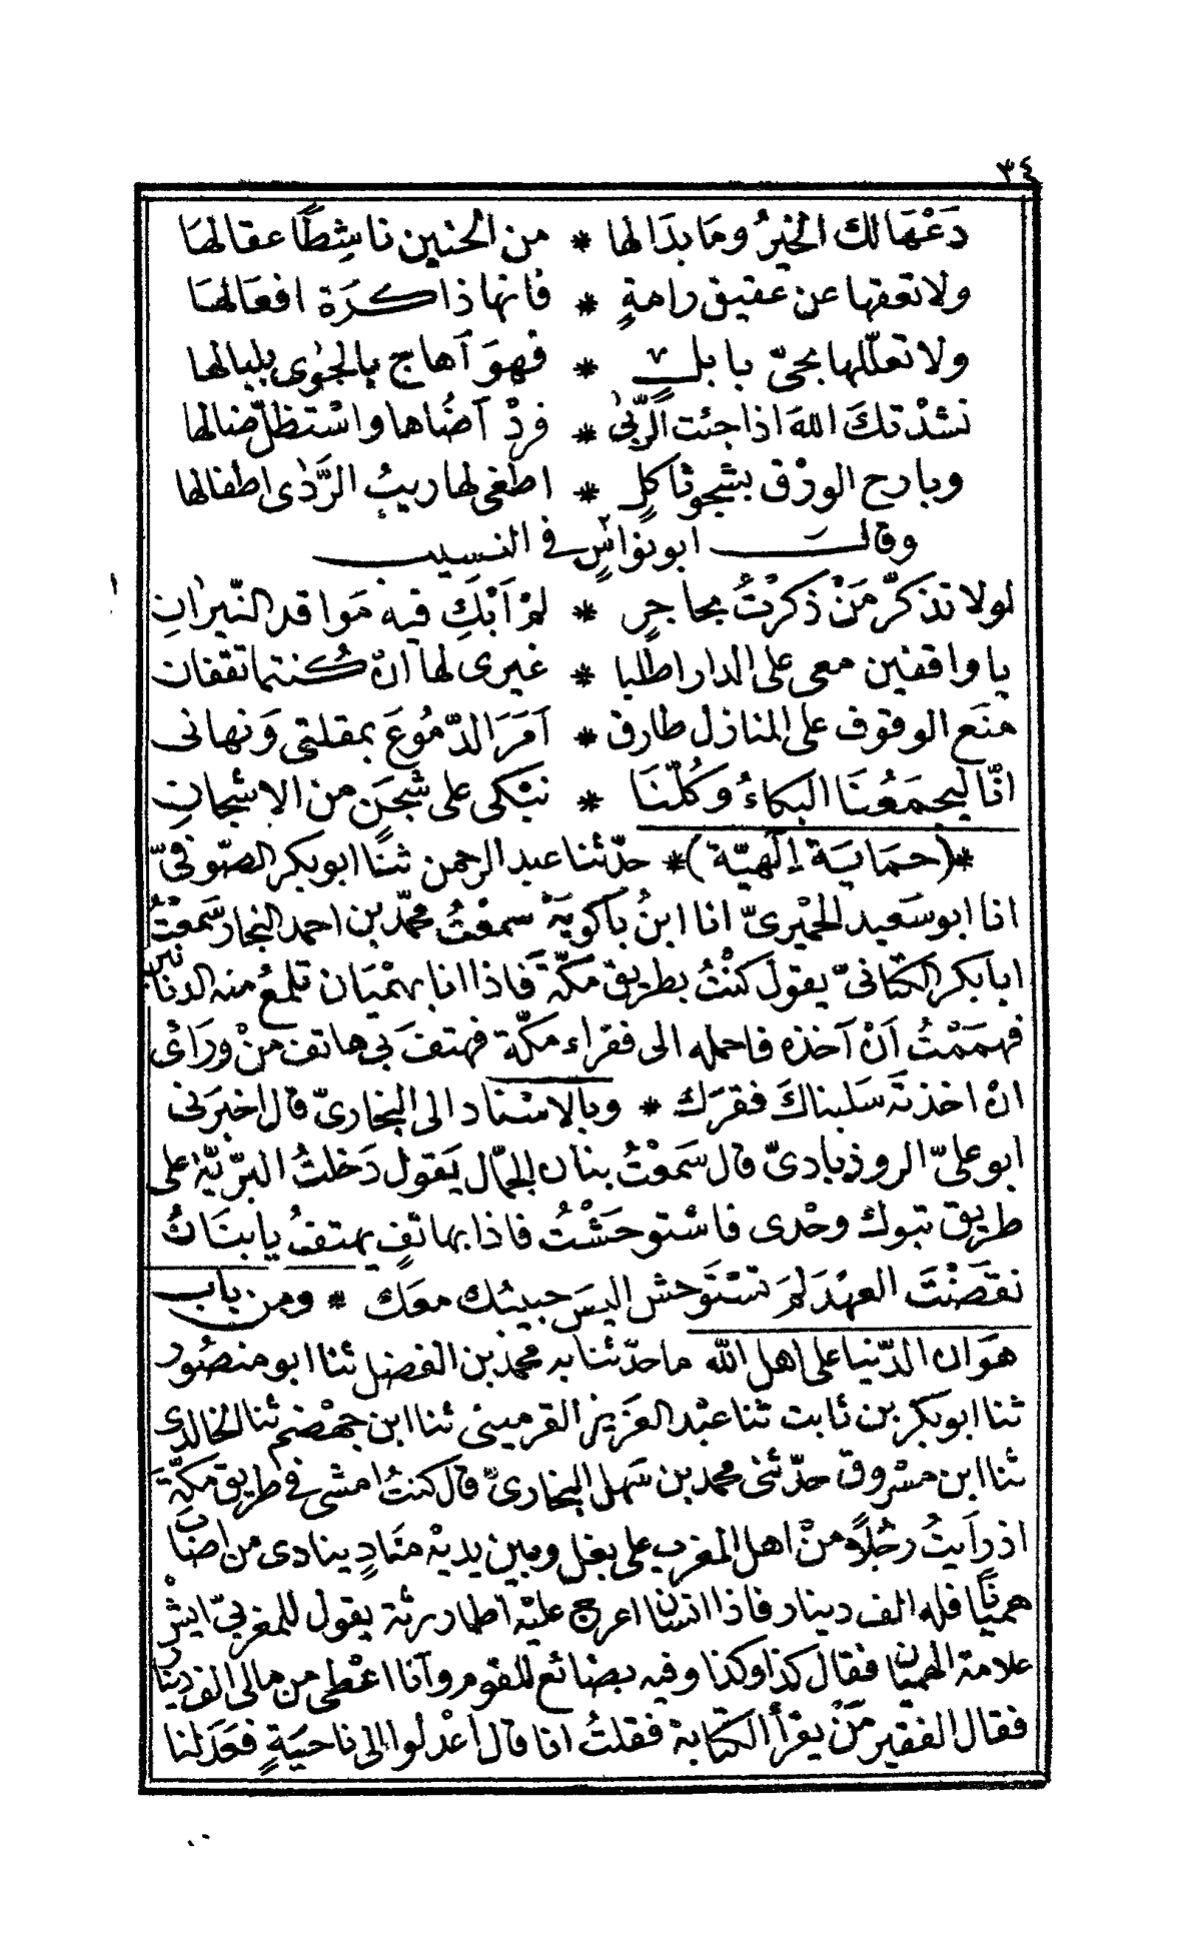 ٣٤
دَعْهَا لك الخيرُ ومَا بدَا لها * من الحنين ناشِطًا عقالهَا
ولا تعقها عن عقيق رامةٍ * فانها ذاكرَة افعَالهَا
ولا تعلّلها بحىّ بابل * فهوَ آهاج بالجوٰى بلبالها
نشدْتكَ اللهَ اذا جئت الرّبىٰ * فردْ آضَاها واسْتظلّ ضالها
وبارح الورْق بشجو ثاكلٍ * اطغى لها ريبُ الرَّدٰى اطفالها
وقال ابو نؤاسٍ فى النسيب
لولا تذكرّ مَنْ ذكرْتُ بحاجرٍ * لمْ آبْكِ فيه مَواقد النّيرانِ
يا واقفين معى على الدار اطلبا * غيرى لها انْ كُنتما تقفان
منَع الوقوف على المنازل طارق * آمَرَ الدّمُوعَ بمقلتى وَنهانى
انّا ليجمَعُنَا البكاءُ وكُلّنَا * نبْكى على شَجَنٍ من الاشجانِ
*(حمَايَة إلهيّة)* حدّثنا عبد الرحمن ثنَا ابو بكر الصّوفىّ
انا ابو سَعيد الحيْرىّ انا ابنُ باكويَة سمعْتُ محمّد بن احمد النجار سَمعْتُ
ابا بكر الكتانىّ يقول كنْتُ بطريق مَكّة فاذا انا بهمْيَان تلمعُ منه الدنانير
فهمَمْتُ اَنْ آخذه فاحمله الى فقراء مَكّة فهتفَ بى هاتف منْ ورَائى
انْ اخذتَه سَلبناكَ فقرَك * وبالاسْناد الى البخارىّ قال اخبرَنى
ابو علىّ الروذبادىّ قال سَمعْتُ بنان الجمّال يَقول دَخلتُ البرّيّة على
طريق تبوك وحْدى فاسْتوحَشْتُ فاذا بهاتفٍ يهتفُ يا بنَانُ
نقضْتَ العهْدَ لمَ تسْتَوحش اليسَ حبيبُك معَك * ومن باب
هوَان الدّنيا على اهل الله ما حدّثنا به محمد بن الفضل ثنا ابو منصُور
ثنا ابو بكر بن ثابت ثنا عبْد العَزيز القرميسنى ثنا ابن جهْضم ثنا الخالدى
ثنا ابن مسْروق حدّثنى محمد بن سَهل البخارىّ قال كنتُ امشى فى طريق مكّة
اذ رآيتُ رجُلاً منْ اهل المغرب على بغل وبين يديْهْ منَادٍ ينادى من اصَابَ
هميَانًا فله الف دينار فاذا انسَان اعرج عليْه اطمار رثة يقول للمغربىّ ايشْ
علامة الهميان فقال كذا وكذا وفيه بضائع للقوم وآنا اعْطى من مالى الف دينار
فقال الفقير مَنْ يقرأ الكتابة فقلتُ انا قال اعْدلوا الى ناحيَةٍ فعَدَلنا